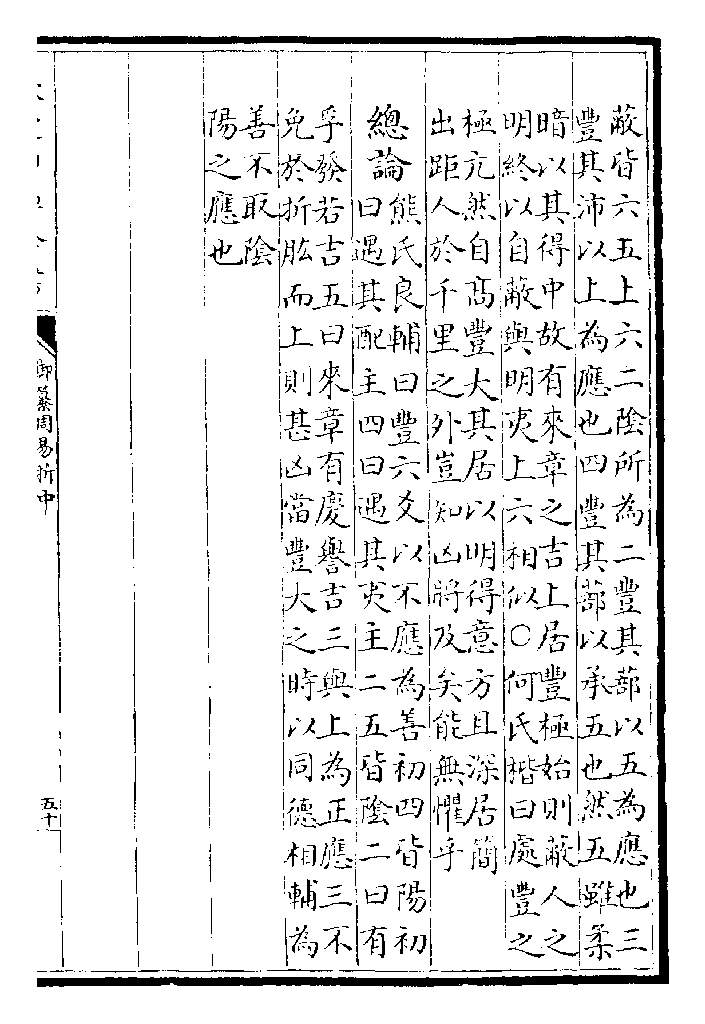 蔽皆六五上六二陰所為二豐其蔀以五為應也三
豐其沛以上為應也四豐其蔀以承五也然五雖柔
暗以其得中故有來章之吉上居豐極始則蔽人之
明終以自蔽與明夷上六相似○何氏楷曰處豐之
極亢然自髙豐大其居以明得意方且深居簡
出距人於千里之外豈知凶將及矣能無懼乎
總論熊氏良輔曰豐六爻以不應為善初四皆陽初
曰遇其配主四曰遇其夷主二五皆陰二曰有
孚發若吉五曰來章有慶譽吉三與上為正應三不
免於折肱而上則甚凶當豐大之時以同德相輔為
善不取陰
陽之應也
御纂周易折中
五十